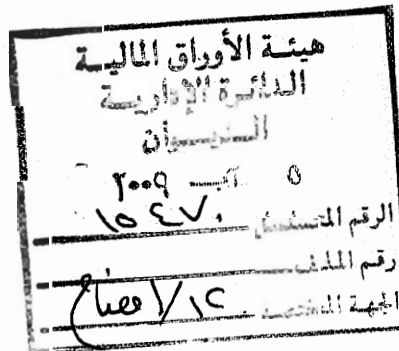 هيئة الأوراق المالية
الدائرة الإدارية
الديوان
٥ ٢٠٠٩
الرقم المتسلسل ١٥٤٧٠
رقم الملف
الجهة المختصة ١٢/